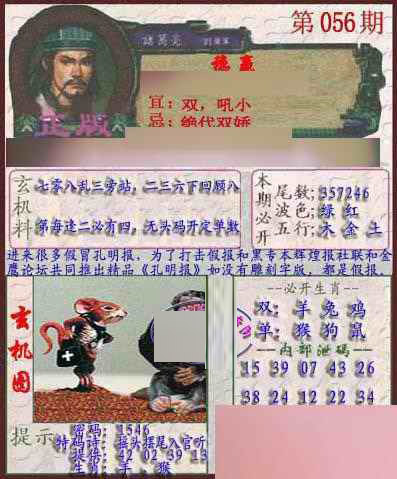 第056期
諸葛亮
稳赢
宜：双，吼小
忌：绝代双娇
正版
玄机料
七零八乱三旁站，二三六下回顾八
第每逢二必有四，无头码开定单数
本期必开
尾数;357246
波色;绿 红
五行;木 金 土
进来很多假冒孔明报，为了打击假报和黑专本辉煌报社联和金
鹰论坛共同推出精品《孔明报》如没有雕刻字版，都是假报.
玄机图
提示
密码：1546
特码诗：摇头摆尾入官听
提倍：42 02 39 13
生肖：羊，猴
--必开生肖--
双：羊 兔 鸡
单：猴 狗 鼠
--内部泄码--
15 39 07 43 26
38 24 12 22 34